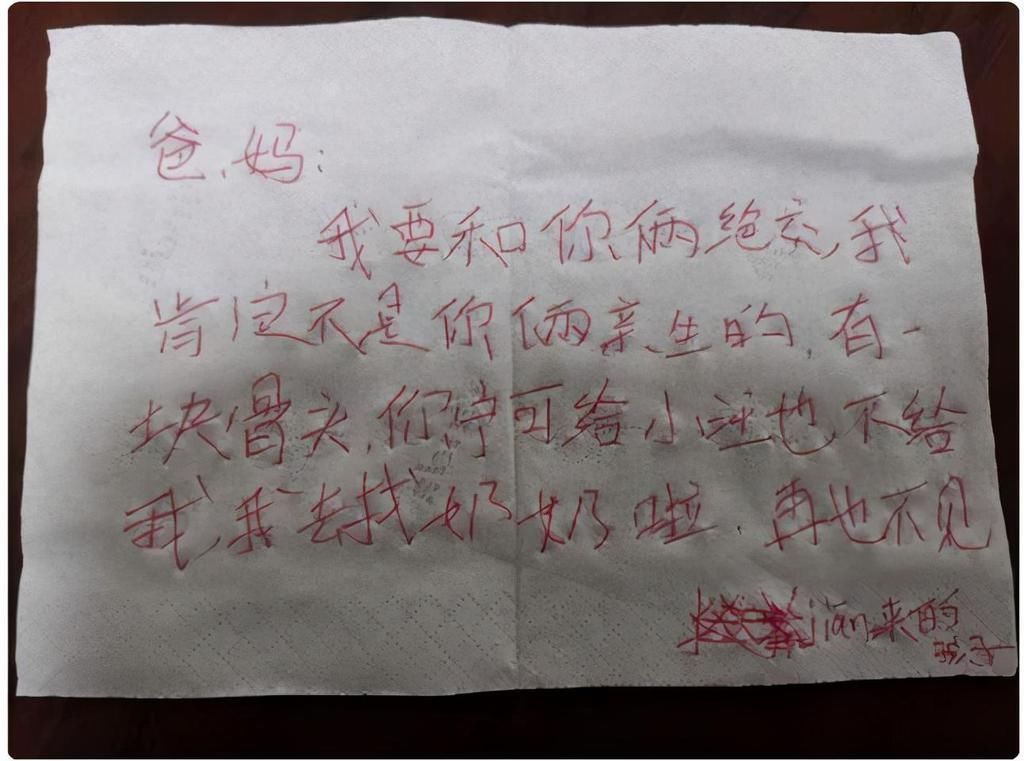 爸、妈:
我要和你俩绝交,我
肯定不是你俩亲生的,有一
块骨头,你宁可给小汪也不给
我,我去找奶奶啦,再也不见
jian来的